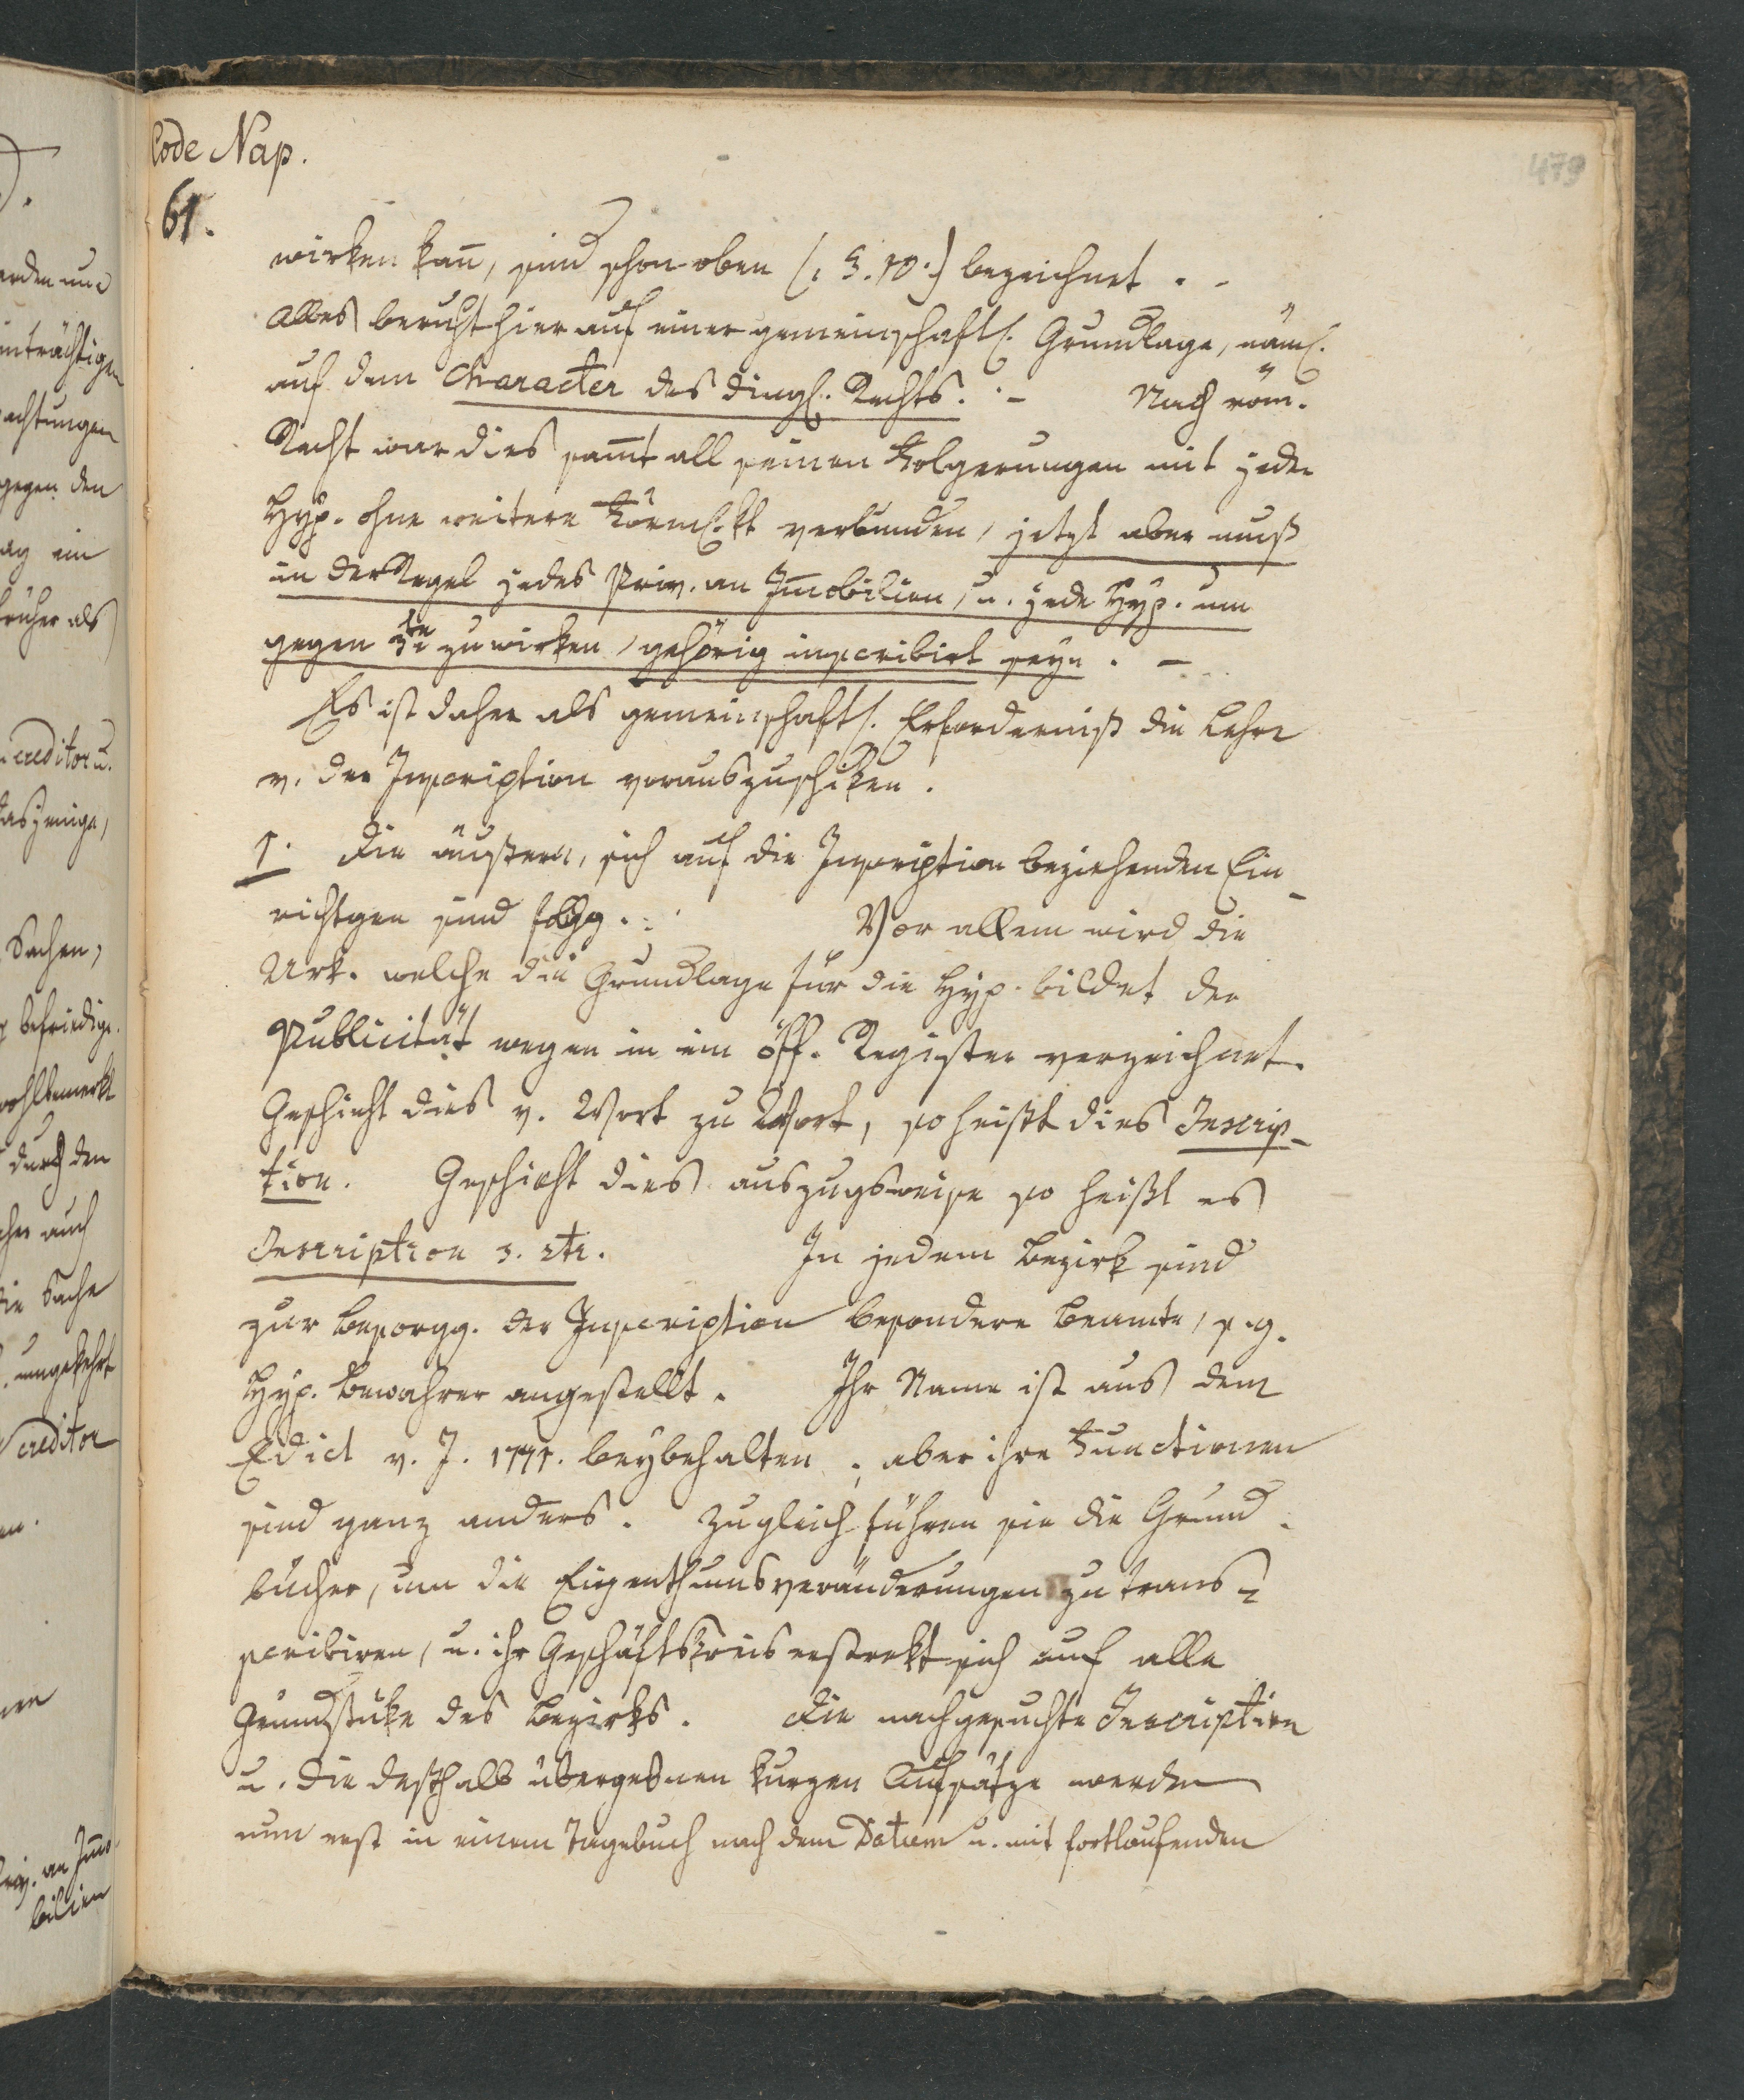 Code Nap.
479
61.
wirken kan̄, sind schon oben (: §. 10 :) bezeichnet. -
Alles beruht hier auf einer gemeinschaftl. Grundlage, näml.
auf dem Character des dingl. Rechts. - Nach röm.
Recht war dies sam̄t all seinen Folgerungen mit jeder
Hyp. ohne weitere Förmlkt verbunden, jetzt aber muß
in der Regel jedes Priv. an Im̄obilien, u. jede Hyp. um
gegen 3te zu wirken, gehörig inscribirt seyn. -
Es ist daher als gemeinschaftl. Erforderniß die Lehre
v. der Inscription vorauszuschiken.
1. Die äußern, sich auf die Inscription beziehenden Ein-
richtgen sind folgg.: Vor allem wird die
Urk. welche die Grundlage für die Hyp. bildet der
Publicität wegen in ein öff. Register verzeichnet.
Geschieht dies v. Wort zu Wort, so heißt dies Inscrip-
tion. Geschieht dies auszugsweise so heißt es
Inscription
In jedem Bezirk sind
zur Besorgg. der Inscription besondere Beamte, s. g.
Hyp. Bewahrer angestellt. Ihr Name ist aus dem
Edict v. J. 1771. beybehalten; aber ihre Functionen
sind ganz anders. Zugleich führen sie die Grund-
bücher, um die Eigenthumsveränderungen zu trans-
scribiren, u. ihr Geschäftskreis erstrekt sich auf alle
Grundstüke des Bezirks. Die nachgesuchte Inscription
u. die deßhalb übergebnen kurzen Aufsätze werden
nun erst in einem Tagebuch nach dem Datum u. mit fortlaufenden